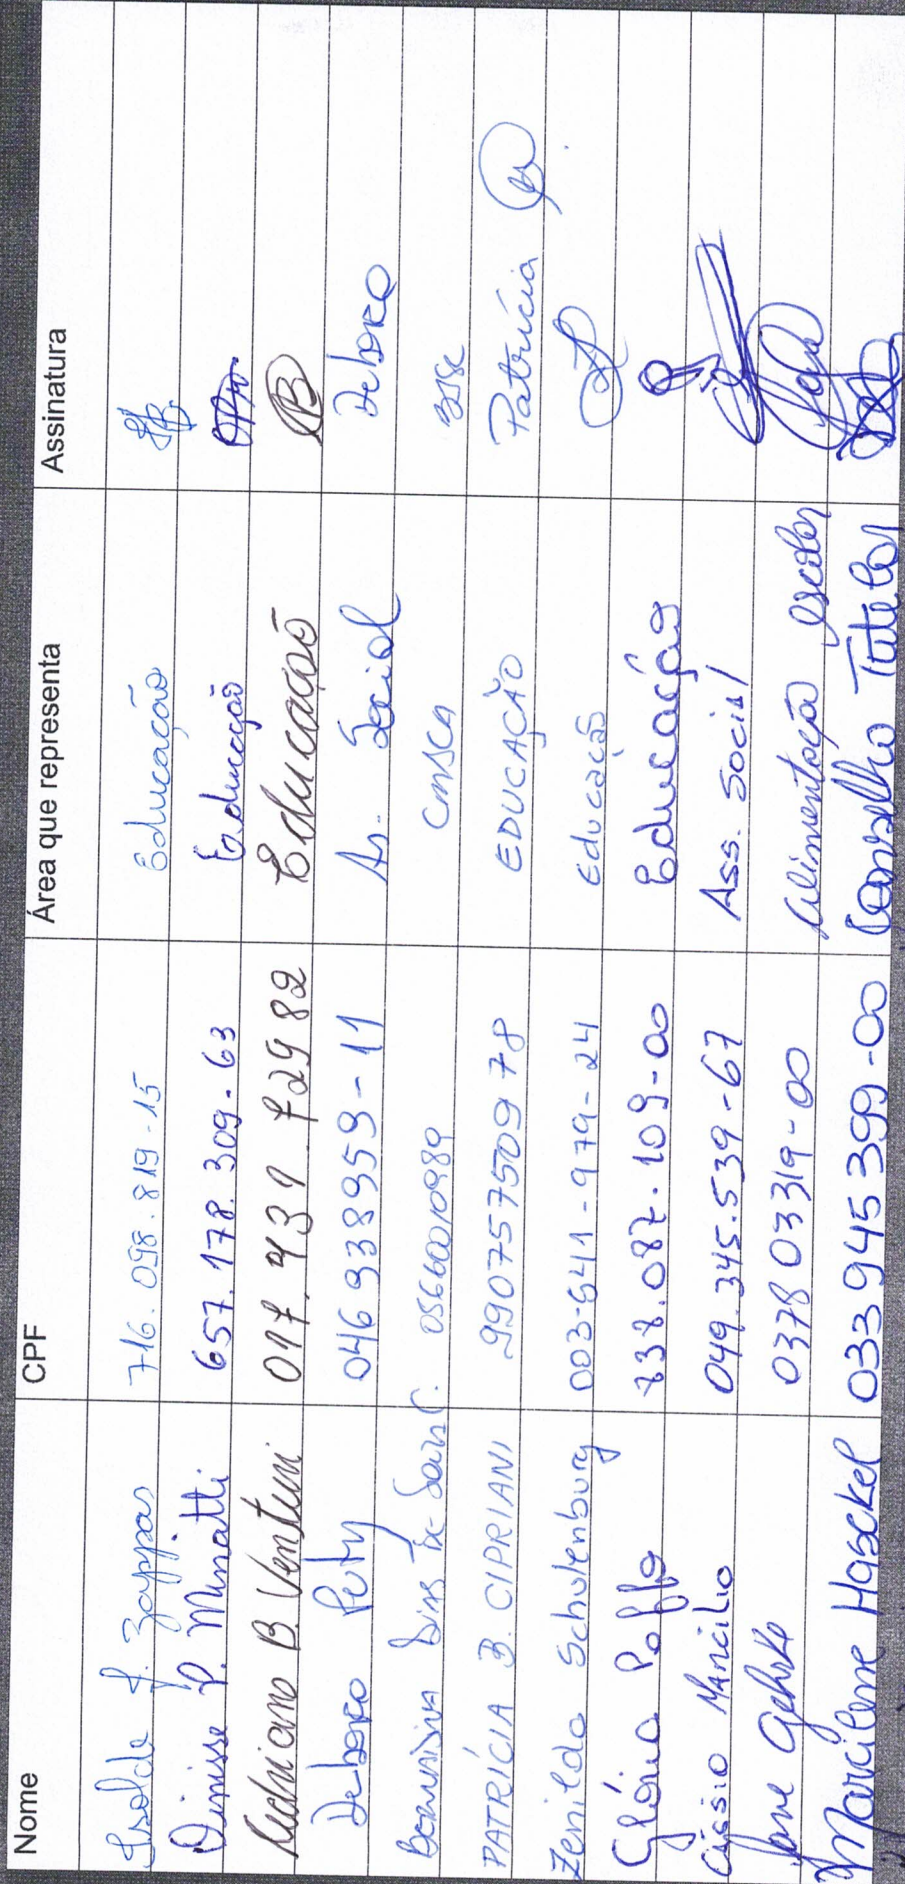 Nome CPF Área que representa Assinatura
Isolde J. Zappas 716.098.819-15 Educação
Dinisse P. Minatti 657.178.309-63 Educação
Adriano B. Venturi 017.931.729 82 Educação B
Debora Puty 046938959-11 As. Social Debora
Dias C. 05660010989 CMSCA
PATRÍCIA B. CIPRIANI 99075750978 EDUCAÇÃO Patrícia
Zenilda Schulenburg 003-541-979-24 Educação
Glória Poffo 838.087.109-00 Educação
Cássio Marcílio 049.345.539-67 Ass. Social
Jane Gehrke 037803319-00 Alimentação escolar
Marcilene Hasckel 033945399-00 Conselho Tutelar